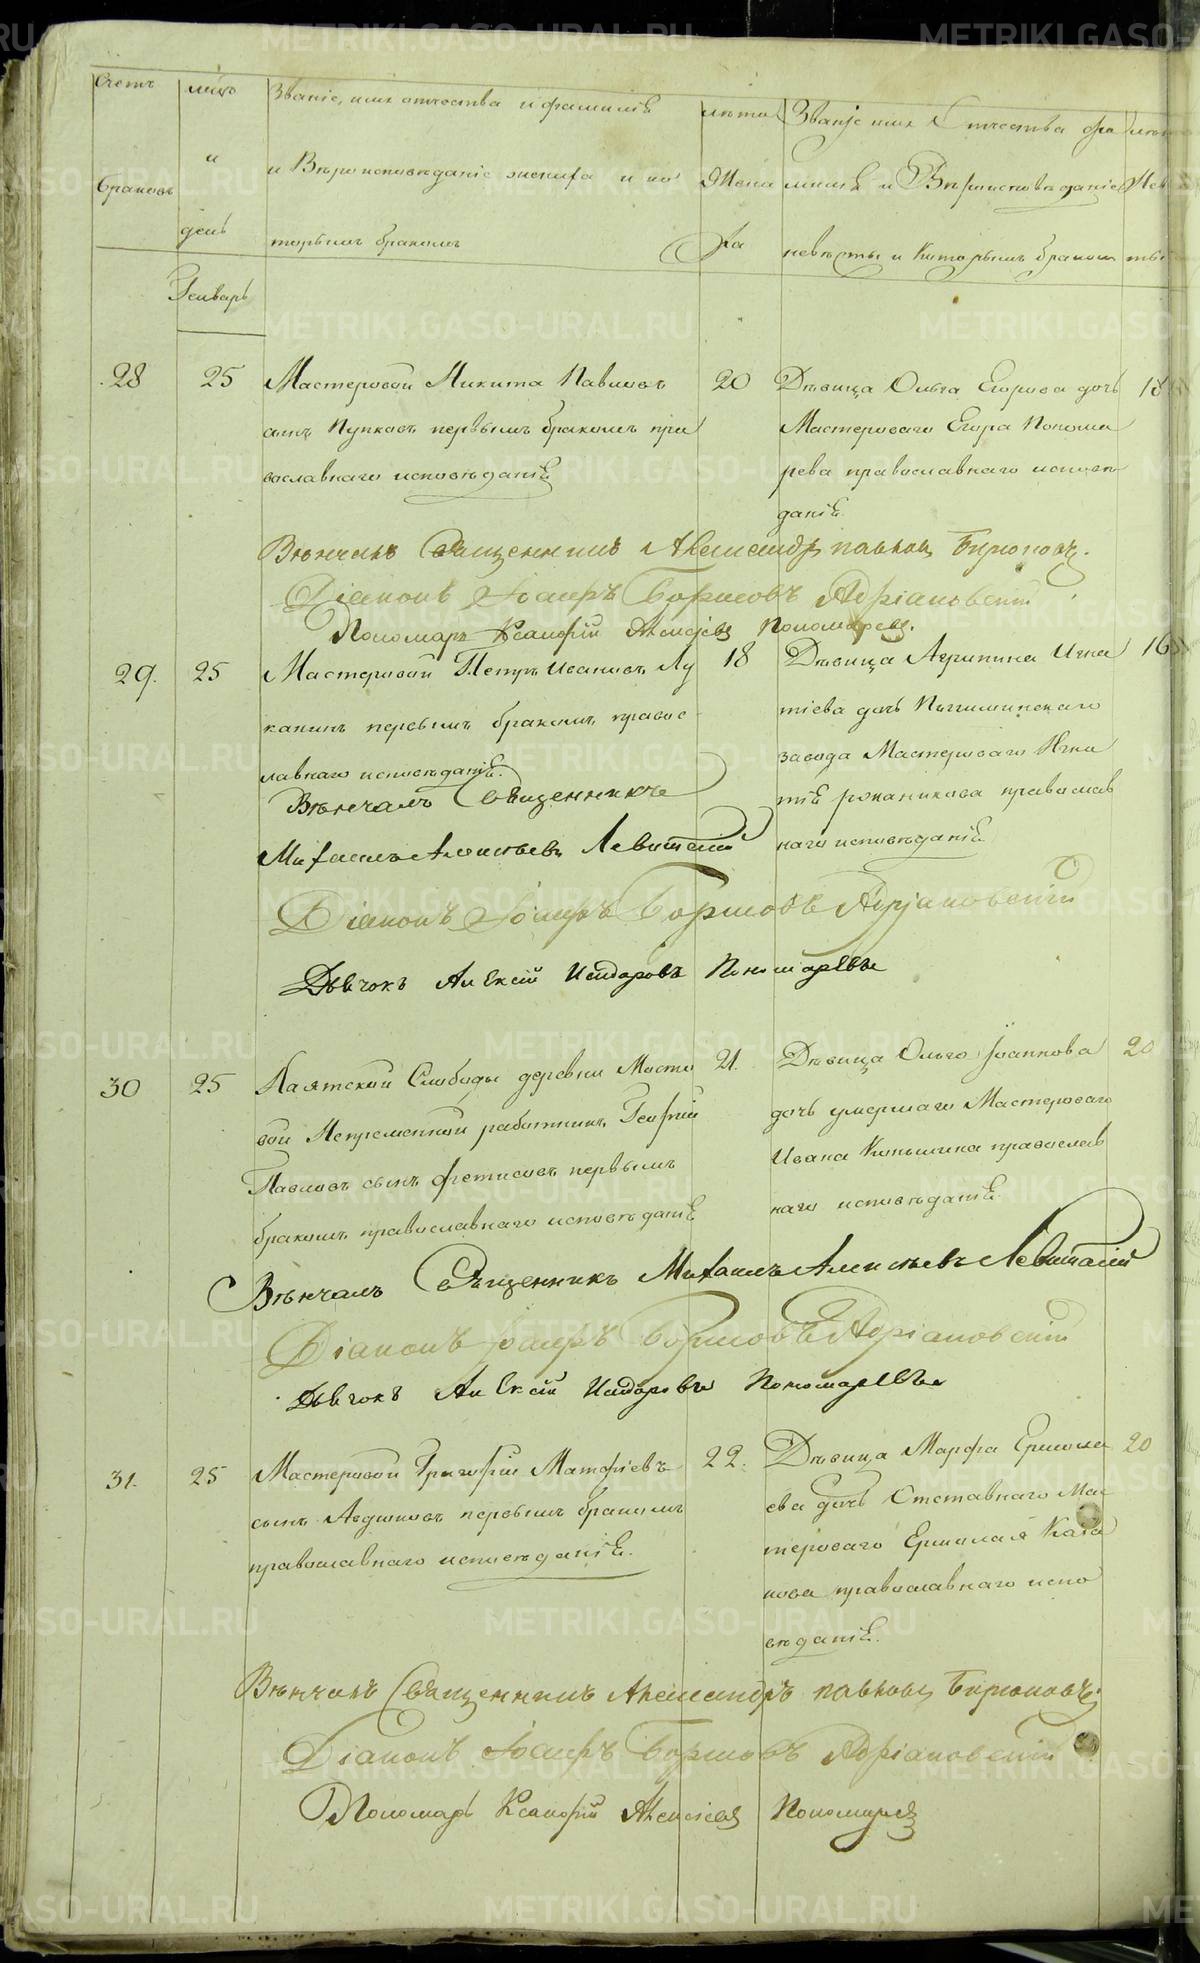 Счетъ браковъ
мцъ и день
Званіе, имя отчества и фамилія
и Вѣроисповѣданіе жениха и ко
торымъ бракомъ
лѣта Жени ха
Званіе имя Отчества фа
милія и Вѣроисповѣданіе
невѣсты и Которымъ бракомъ
лѣт Нев ты
Генварь
28 25
Мастеровой Никита Павловъ
сынъ Пупковъ первымъ бракомъ пра
вославнаго исповѣданія
20
Дѣвица Ольга Егорова дочь
Мастероваго Егора Понома
рева православнаго исповѣ
данія
18
Вѣнчалъ Священникъ Александръ павловъ Бирюковъ.
Діаконъ Борисовъ Адріановскій
Пономарь Ксанофій Алексѣевъ Пономаревъ.
29. 25
Мастеровой Петръ Ивановъ Лу
канинъ первымъ бракомъ правос
лавнаго исповѣданія.
18
Дѣвица Агрипина Игна
тіева дочь Пышминскаго
завода Мастероваго Игна
тія романикова православ
наго исповѣданія
16
Вѣнчалъ Священникъ
Михаилъ Алексѣевъ Левитскій
Діаконъ Борисовъ Адріановскій
Дьячокъ Алексій Исидоровъ Пономаревъ
30 25
Аятской Слободы деревни Мосто
вой Непременной работникъ Георгій
Павловъ сынъ фетисовъ первымъ
бракомъ православнаго исповѣданія
21.
Дѣвица Ольга Іоаннова
дочь умершаго Мастероваго
Ивана Коньшина православ
наго исповѣданія
20
Вѣнчалъ Священникъ Михаилъ Алексѣевъ Левитскій
Діаконъ Борисовъ Адріановскій
Дьячокъ Алексій Исидоровъ Пономаревъ
31. 25
Мастеровой Григорій Матфіевъ
сынъ Авдюковъ первымъ бракомъ
православнаго исповѣданія.
22.
Дѣвица Марфа Ермола
ева дочь Отставнаго Мас
тероваго Ермолая Каза
кова православнаго испо
вѣданія.
20
Вѣнчалъ Священникъ Александръ павловъ Бирюковъ.
Діаконъ Борисовъ Адріановскій
Пономарь Ксанофій Алексѣевъ Пономаревъ
METRIKI.GASO-URAL.RU